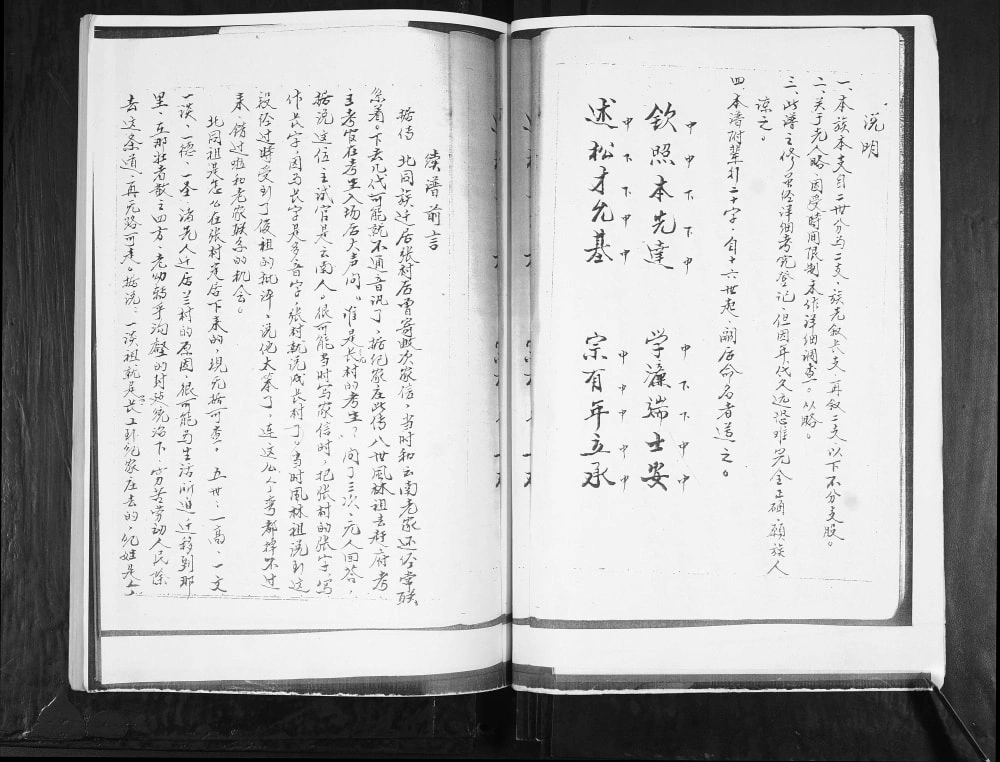 说明
一、本族本支自二世分为二支,族先叙长支,再叙二支,以下不分支股。
二、关于先人略,因受时间限制未作详细调查。从略。
三、此谱之修虽经详细考究登记,但因年代久远恐难完全正确,愿族人
谅之。
四、本谱附辈引二十字,自十六世起,嗣后命名者遵之。
中 中 下 下 中
钦照本先达
中 下 下 中 中
学濂端士安
中 下 下 中 中
述松才允基
中 中 中 中 中
宗有年立承
续谱前言
据传 北同族迁居张村后曾寄数次家信,当时和云南老家还经常联
系着。下去几代可能就不通音讯了,据纪家在此传八世风林祖去府考
主考官在考生入场后大声问:“谁是长村的考生?问了三次,无人回答,
据说这位主试官是云南人。很可能当时写家信时,把张村的张字,写
作长字,因为长字是多音字,张村就说成长村了。当时风林祖说到这
段给过时受到了后祖的批评,说他太笨了,连这么个弯都掉不过
来,错过啦和老家联系的机会。
北同祖是怎么在张村定居下来的,现无据可查。五世:一高、一文
一谟、一德、一圣、诸先人迁居兰村的原因,很可能为生活所迫迁移到那
里,在那壮者散之四方,老幼转乎沟壑的封建统治下,穷苦劳动人民除
去这条道,再无路可走。据说:一谟祖就是长工到纪家庄去的,纪姓是个